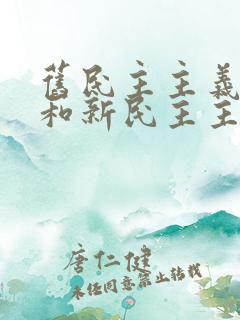 舊民主主義
和新民主主
唐仁健
未经同意禁止转载